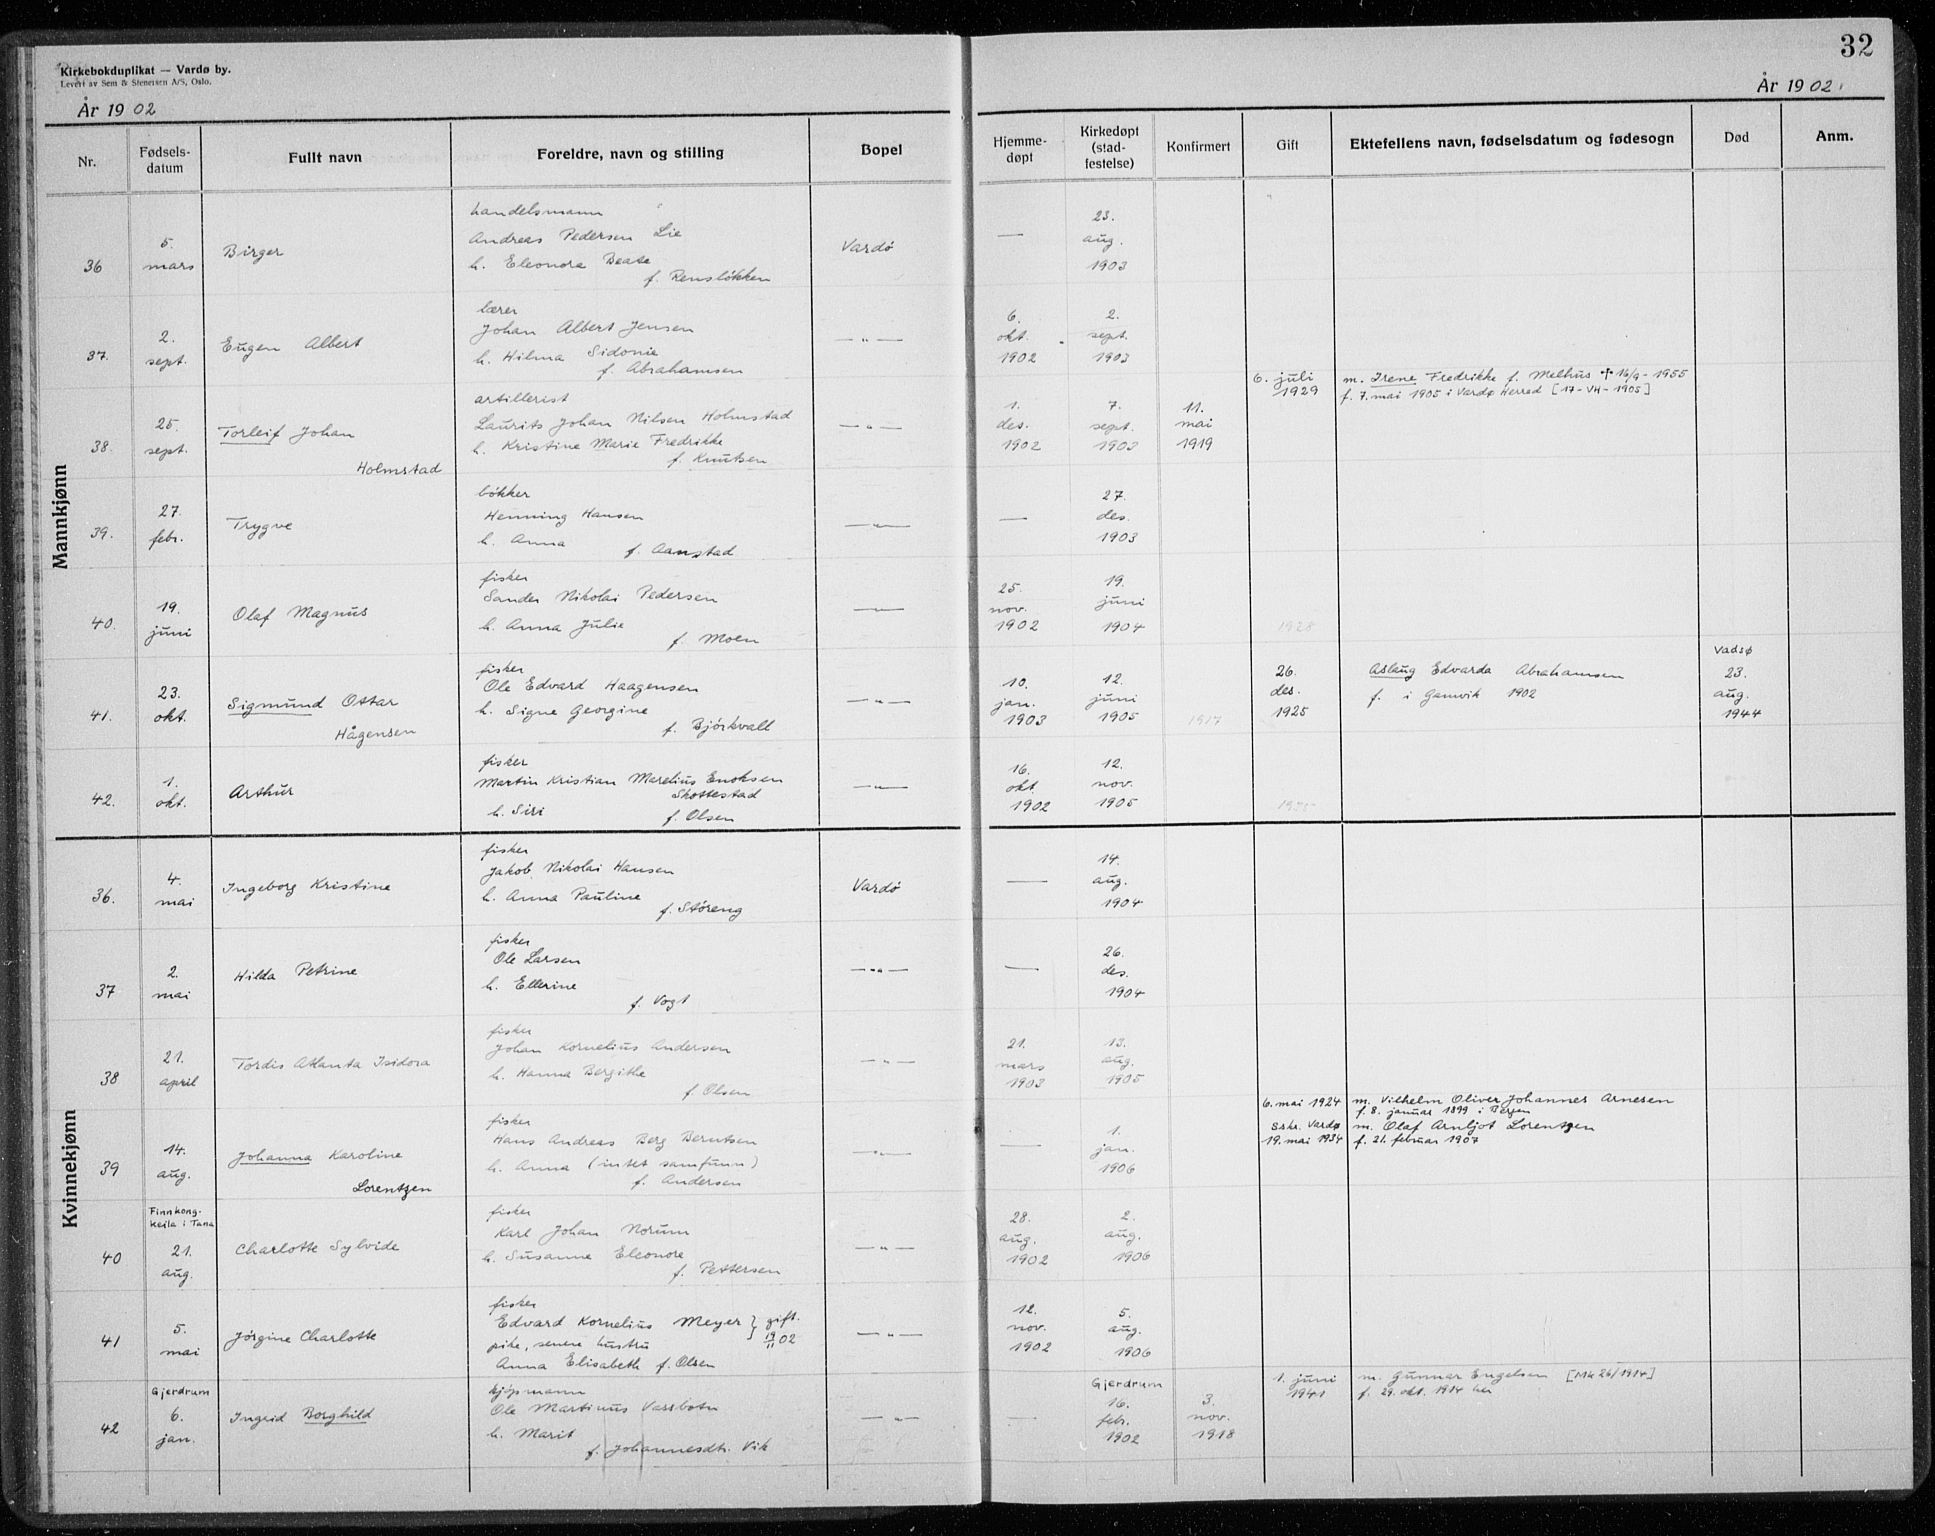 32
Kirkebokduplikat — Vardø by.
Levert av Sem & Stenersen A/S, Oslo.
År 1902
År 1902
Nr. Fødsels-datum Fullt navn Foreldre, navn og stilling Bopel Hjemme-døpt Kirkedøpt (stad-festelse) Konfirmert Gift Ektefellens navn, fødselsdatum og fødesogn Død Anm.
Mannkjønn
handelsmann
Andreas Pedersen Lie
36 5. mars Birger Vardö — 23. aug. 1903
h. Eleonora Beate
f. Renslökken
lærer
Johan Albert Jensen
37. 2. sept. Eugen Albert —"— 6. okt. 1902 2. sept. 1903
h. Hilma Sidonie
f. Abrahamsen
6. juli 1929 m. Irene Fredrikke f. Melhus † 16/9-1955
f. 7. mai 1905 i Vardø Herred [17-VH-1905]
artillerist
Laurits Johan Nilsen Holmstad
38. 25. sept. Torleif Johan —"— 1. des. 1902 7. sept. 1903 11. mai 1919
h. Kristine Marie Fredrikke
Holmstad f. Knutsen
bökker
Henning Hansen
39. 27. febr. Trygve —"— — 27. des. 1903
h. Anna f. Aanstad
fisker
Sander Nikolai Pedersen
40. 19. juni Olaf Magnus —"— 25. nov. 1902 19. juni 1904 1928
h. Anna Julie
f. Moen
fisker
Ole Edvard Haagensen
41. 23. okt. Sigmund Ottar —"— 10. jan. 1903 12. juni 1905 1917 26. des. 1925 Aslaug Edvarda Abrahamsen
f. i Gamvik 1902 Vadsø 23. aug. 1944
h. Signe Georgine
Hågensen f. Björkvall
fisker
Martin Kristian Marelius Enoksen
Skottestad
42. 1. okt. Arthur —"— 16. okt. 1902 12. nov. 1905
h. Siri f. Olsen
Kvinnekjønn
fisker
Jakob Nikolai Hansen
36. 4. mai Ingeborg Kristine Vardö — 14. aug. 1904
h. Anna Pauline
f. Störeng
fisker
Ole Larsen
37 2. mai Hilda Petrine —"— — 26. des. 1904
h. Ellerine
f. Vogt
fisker
Johan Kornelius Andersen
38 21. april Tordis Atlanta Isidora —"— 21. mars 1903 13. aug. 1905
h. Hanna Bergithe
f. Olsen
6. mai 1924 m. Vilhelm Oliver Johannes Arnesen
f. 8. januar 1899 i Bergen
Sskr. Vardø 19. mai 1934 m. Olaf Arnljot Lorentzen
f. 21. februar 1907
fisker
Hans Andreas Berg Berntsen
39 14. aug. Johanna Karoline —"— — 1. jan. 1906
h. Anna (intet samfunn)
Lorentzen f. Andersen
Finnkong-keila i Tana
fisker
Karl Johan Norum
40 21. aug. Charlotte Sylvide —"— 28. aug. 1902 2. aug. 1906
h. Susanne Eleonore
f. Pettersen
fisker
Edvard Kornelius Meyer } gift. 19/11 02
41 5. mai Jörgine Charlotte —"— 12. nov. 1902 5. aug. 1906
pike, senere hustru
Anna Elisabeth f. Olsen
1. juni 1941 m. Gunnar Engelsen [Mk 26/1914]
f. 29. okt. 1914 her
Gjerdrum
kjöpmann
Ole Martinus Vassbotn
42 6. jan. Ingrid Borghild —"— — Gjerdrum 16. febr. 1902 3. nov. 1918
h. Marit
f. Johannesdtr. Vik